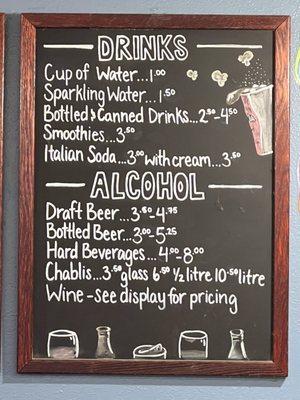 DRINKS
Cup of Water...1.00
Sparkling Water...1.50
Bottled & Canned Drinks...2.50-4.50
Smoothies...3.50
Italian Soda...3.00 with cream...3.50
ALCOHOL
Draft Beer...3.50-4.75
Bottled Beer...3.00-5.25
Hard Beverages...4.00-8.00
Chablis...3.50 glass 6.50 ½ litre 10.50 litre
Wine - see display for pricing